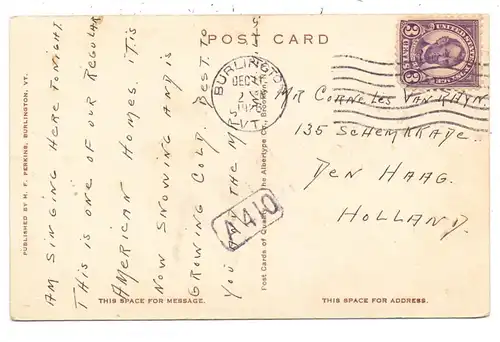 POST CARD
PUBLISHED BY H. F. PERKINS, BURLINGTON, VT.
AM SINGING HERE TONIGHT.
THIS IS ONE OF OUR REGULAR
AMERICAN HOMES. IT IS
NOW SNOWING AND IS
GROWING COLD. BEST TO
YOU AND THE MRS.
THIS SPACE FOR MESSAGE.
Post Cards of Quality. The Albertype Co., Brooklyn, N.Y.
BURLINGTON
DEC
VT.
A 410
UNITED STATES
3 3
MR CORNELES VAN RHYN.
135 SCHENKKADE.
DEN HAAG.
HOLLAND.
THIS SPACE FOR ADDRESS.